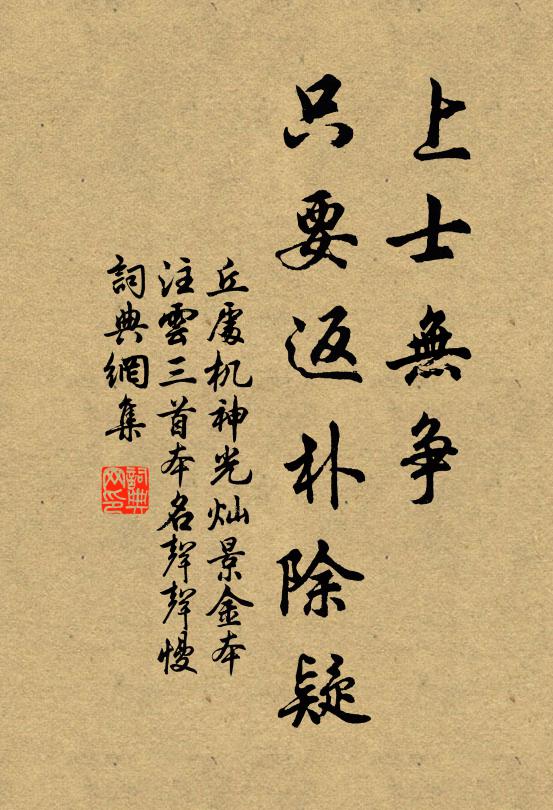 上士無争
只要返朴除疑
丘處机神光灿景金本
注雲三首本名聲聲慢
詞典網集
詞典網印